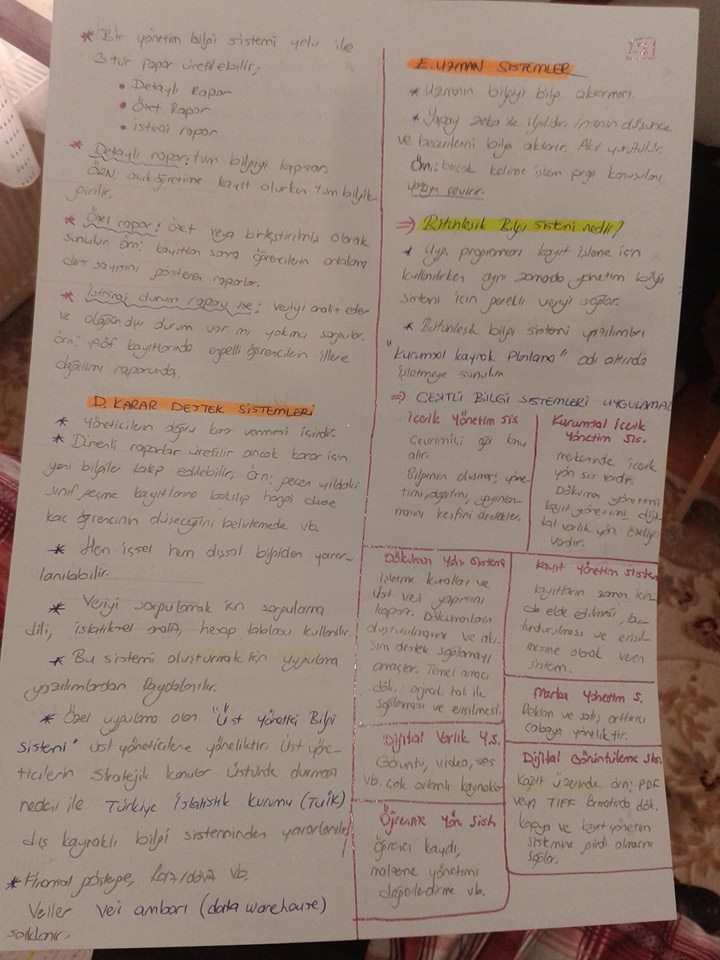 * Bir yönetim bilgi sistemi yolu ile
3 tür rapor üretilebilir;
• Detaylı Rapor
• Özet Rapor
• istisnai rapor
* Detaylı rapor: tüm bilgiyi kapsar.
ÖRN. açık öğretime kayıt olurken tüm bilgiler
girilir.
* Özet rapor: özet veya birleştirilmiş olarak
sunulur. örn: kayıttan sonra öğrencilerin ortalama
ders sayısını gösteren raporlar.
* istisnai durum raporu ise: veriyi analiz eder
ve olağan dışı durum var mı yok mu sorgular.
örn: AÖF kayıtlarında engelli öğrencilerin illere
dağılımı raporunda.
D. KARAR DESTEK SİSTEMLERİ
* Yöneticilerin doğru karar vermesi içindir.
* Düzenli raporlar üretilir ancak karar için
yeni bilgiler talep edilebilir. örn: geçen yıldaki
sınıf geçme kayıtlarına bakılıp hangi derse
kaç öğrencinin düşeceğini belirlemede vb.
* Hem içsel hem dışsal bilgiden yarar-
lanılabilir.
* Veriyi sorgulamak için sorgulama
dili, istatiksel analiz, hesap tablosu kullanılır.
* Bu sistemi oluşturmak için uygulama
yazılımlardan faydalanılır.
* Özel uygulama olan "Üst Yönetici Bilgi
Sistemi" üst yöneticilere yöneliktir. Üst yöne-
ticilerin stratejik konular üstünde durması
nedeni ile Türkiye İstatistik Kurumu (TUİK)
dış kaynaklı bilgi sisteminden yararlanılır
* Finansal gösterge, vb.
Veriler veri ambarı (data warehouse)
saklanır.
E. UZMAN SİSTEMLER
* Uzmanın bilgiyi bilg. aktarması.
* Yapay zeka ile ilgilidir. insanın düşünce
ve becerilerini bilg. aktarır. Akıl yürütülür.
Örn: kelime işlem prog. konuşulanı
yazıya çevirir.
⇒ Bütünleşik Bilgi Sistemi nedir?
* Uyg. programları kayıt işleme için
kullanılırken aynı zamanda yönetim bilgi
sistemi için gerekli veriyi sağlar.
* Bütünleşik bilgi sistemi yazılımları
"Kurumsal Kaynak Planlama" adı altında
işletmeye sunulur.
⇒ ÇEŞİTLİ BİLGİ SİSTEMLERİ UYGULAMAL
İçerik Yönetim Sis
Çevrimiçi gibi konu
alır.
Bilginin oluşması, yöne-
timi, dağıtımı, yayınlan-
masını keşfini destekler.
Kurumsal İçerik
Yönetim Sis.
merkezinde içerik
yön sis vardır.
Döküman yönetimi
kayıt yönetimi, diji-
tal varlık yön. özelliği
vardır.
Döküman Yön. Sistemi
İşletme kuralları ve
üst veri yapısını
kapsar. Dökümanların
oluşturulmasını ve
destek sağlamayı
amaçlar. Temel amacı
dök.
sağlaması ve erişilmesi
Kayıt Yönetim Sistemi
kayıtların zaman için
de elde edilmesi, bu-
lundurulması ve erişil-
mesine olanak veren
sistem.
Marka Yönetim S.
Reklam ve satış arttırıcı
çabaya yöneliktir.
Dijital Varlık Y.S.
Görüntü, video, ses
vb. çok ortamlı kaynaklar
Dijital Görüntüleme Sis.
Kağıt üzerinde örn; PDF
veya TIFF formatında dök.
kopya ve kayıt yönetim
sistemine girdi olmasını
sağlar.
Öğrenme Yön Sistm
Öğrenci kaydı,
malzeme yönetimi
değerlendirme vb.